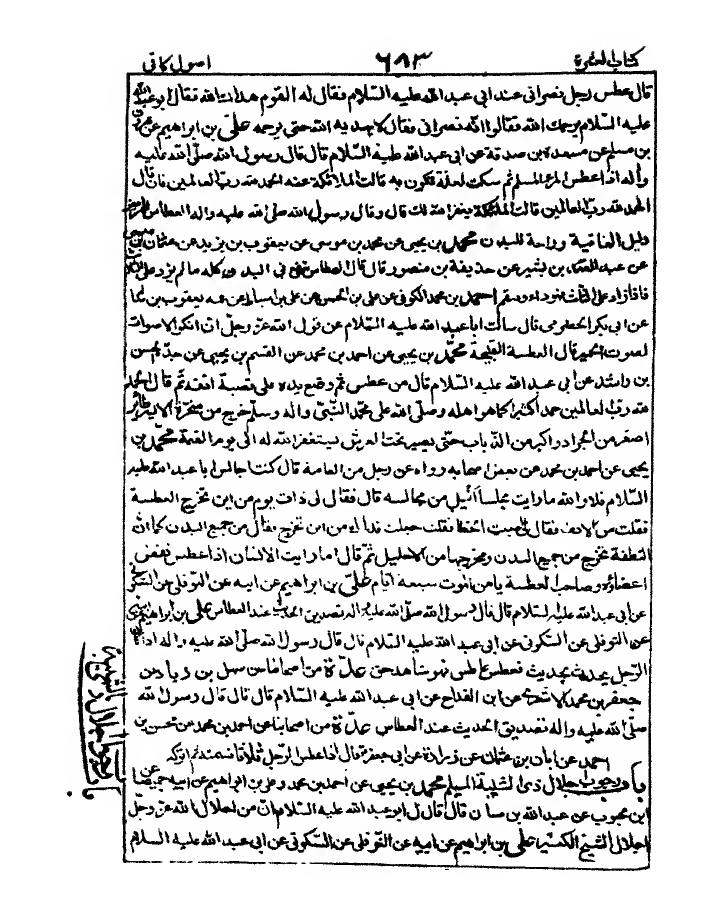 كتاب العشرة ٦٨٣ اصول كافى
قال عطس رجل نصرانى عند ابى عبد الله عليه السّلام فقال له القوم هداك الله فقال ابو عبد الله
عليه السّلام يرحمك الله فقالوا انّه نصرانى فقال لا يهديه الله حتى يرحمه علىّ بن ابراهيم عن هرون
بن مسلم عن مسعدة بن صدقة عن ابى عبد الله عليه السّلام قال قال رسول الله صلّى الله عليه
واله اذا عطس المرء المسلم ثم سكت لعلّة تكون به قالت الملائكة عنه الحمد لله ربّ العالمين فان قال
الحمد لله ربّ العالمين قالت الملئكة يغفر الله لك قال وقال رسول الله صلى الله عليه واله العطاس للمريض
دليل العافية وراحة للبدن محمّد بن يحيى عن محمد بن موسى عن يعقوب بن يزيد عن عثمان بن عيسى
عن عبد الصمد بن بشير عن حذيفة بن منصور قال قال العطاس ينفع فى البدن كله ما لم يزد على الثلث
فاذا زاد على الثلث فهو داء وسقم احمد بن محمد الكوفى عن على بن الحسن عن على بن اسباط عن عمه يعقوب بن سالم
عن ابى بكر الحضرمى قال سالت ابا عبد الله عليه السّلام عن قول الله عزّ وجلّ انّ انكر الاصوات
لصوت الحمير قال العطسة القبيحة محمّد بن يحيى عن احمد بن محمد عن القسم بن يحيى عن جدّه الحسن
بن راشد عن ابى عبد الله عليه السّلام قال من عطس ثم وضع يده على قصبة انفه ثم قال الحمد
لله ربّ العالمين حمدا كثيرا كما هو اهله وصلّى الله على محمّد النّبىّ واله وسلّم خرج من منخره الايسر طائر
اصغر من الجراد واكبر من الذّباب حتّى يصير تحت العرش يستغفر الله له الى يوم القيمة محمّد بن
يحيى عن احمد بن محمد عن بعض اصحابه رواه عن رجل من العامة قال كنت اجالس ابا عبد الله عليه
السّلام فلا والله ما رايت مجلسا انبل من مجالسه قال فقال لى ذات يوم من اين تخرج العطسة
فقلت من الانف فقال لى اصبت الخطا فقلت جعلت فداك من اين تخرج فقال من جميع البدن كما انّ
النّطفة تخرج من جميع البدن ومخرجها من الاحليل ثمّ قال اما رايت الانسان اذا عطس نفض
اعضاؤه وصاحب العطسة يامن الموت سبعة ايّام علىّ بن ابراهيم عن ابيه عن النوفلى عن السّكونى
عن ابى عبد الله عليه السّلام قال قال رسول الله صلّى الله عليه واله تصديق الحديث عند العطاس على بن ابراهيم عن ابيه
عن النوفلى عن السّكونى عن ابى عبد الله عليه السّلام قال قال رسول الله صلّى الله عليه واله اذا كان
الرّجل يحدث بحديث فعطس عاطس فهو شاهد حق عدّة من اصحابنا عن سهل بن زياد عن
جعفر بن محمد الاشعرى عن ابن القداح عن ابى عبد الله عليه السّلام قال قال قال رسول الله
صلّى الله عليه واله تصديق الحديث عند العطاس عدّة من اصحابنا عن احمد بن محمد عن محسن بن
احمد عن ابان بن عثمان عن زرارة عن ابى جعفر قال اذا عطس الرّجل ثلاثا فسمته ثم اتركه
باب وجوب اجلال ذى الشّيبة المسلم محمد بن يحيى عن احمد بن محمد وعلى بن ابراهيم عن ابيه جميعا عن
ابن محبوب عن عبد الله بن سنان قال قال لى ابو عبد الله عليه السّلام انّ من اجلال الله عزّ وجلّ
اجلال الشّيخ الكبير على بن ابراهيم عن ابيه عن النّوفلى عن السّكونى عن ابى عبد الله عليه السّلام
باب وجوب اجلال ذى الشيبة